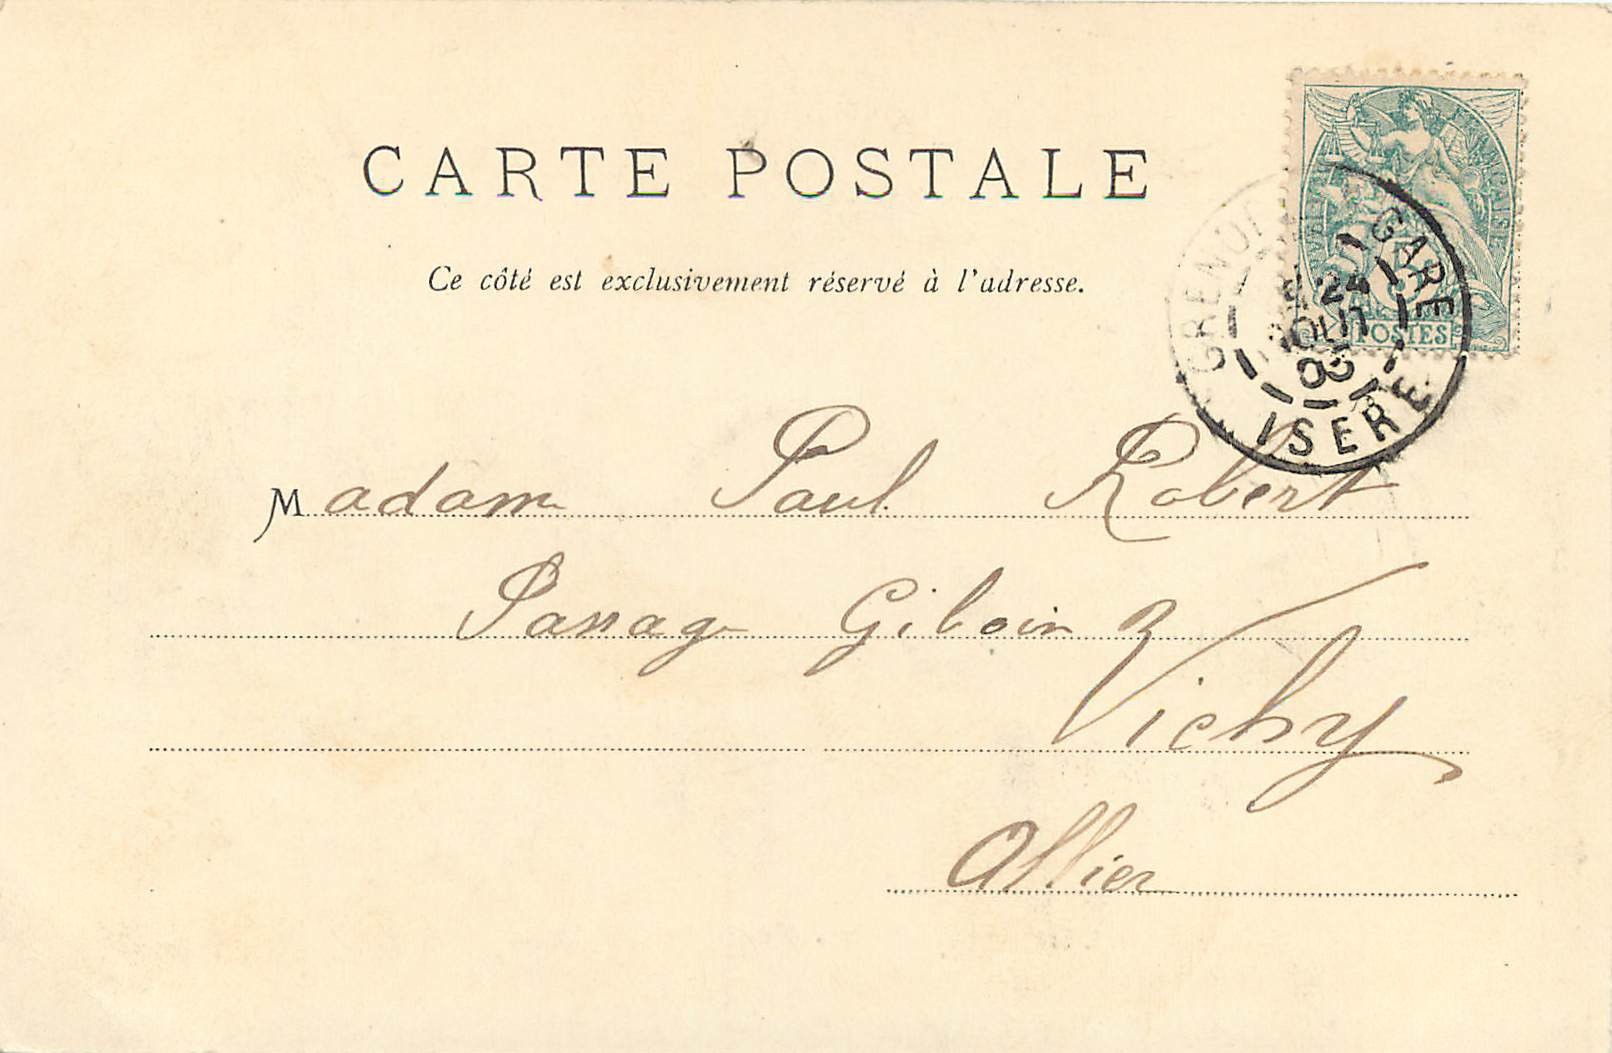 CARTE POSTALE
Ce côté est exclusivement réservé à l'adresse.
RÉPUBLIQUE FRANÇAISE
5
POSTES
GARE
24
AOUT
03
ISERE
Madame Paul Robert
Passage Giboin
Vichy
Allier